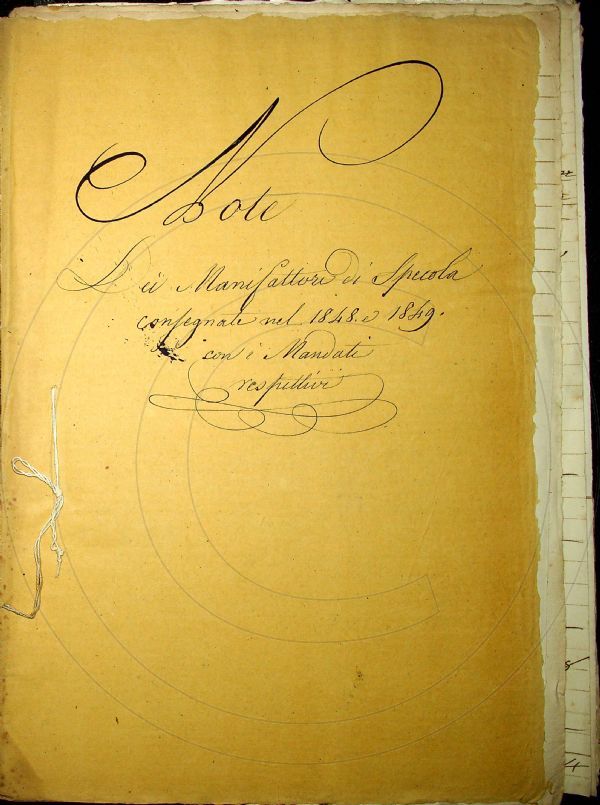 Note
Dei Manifattori di Specola
consegnate nel 1848. e 1849.
con i Mandati
respettivi